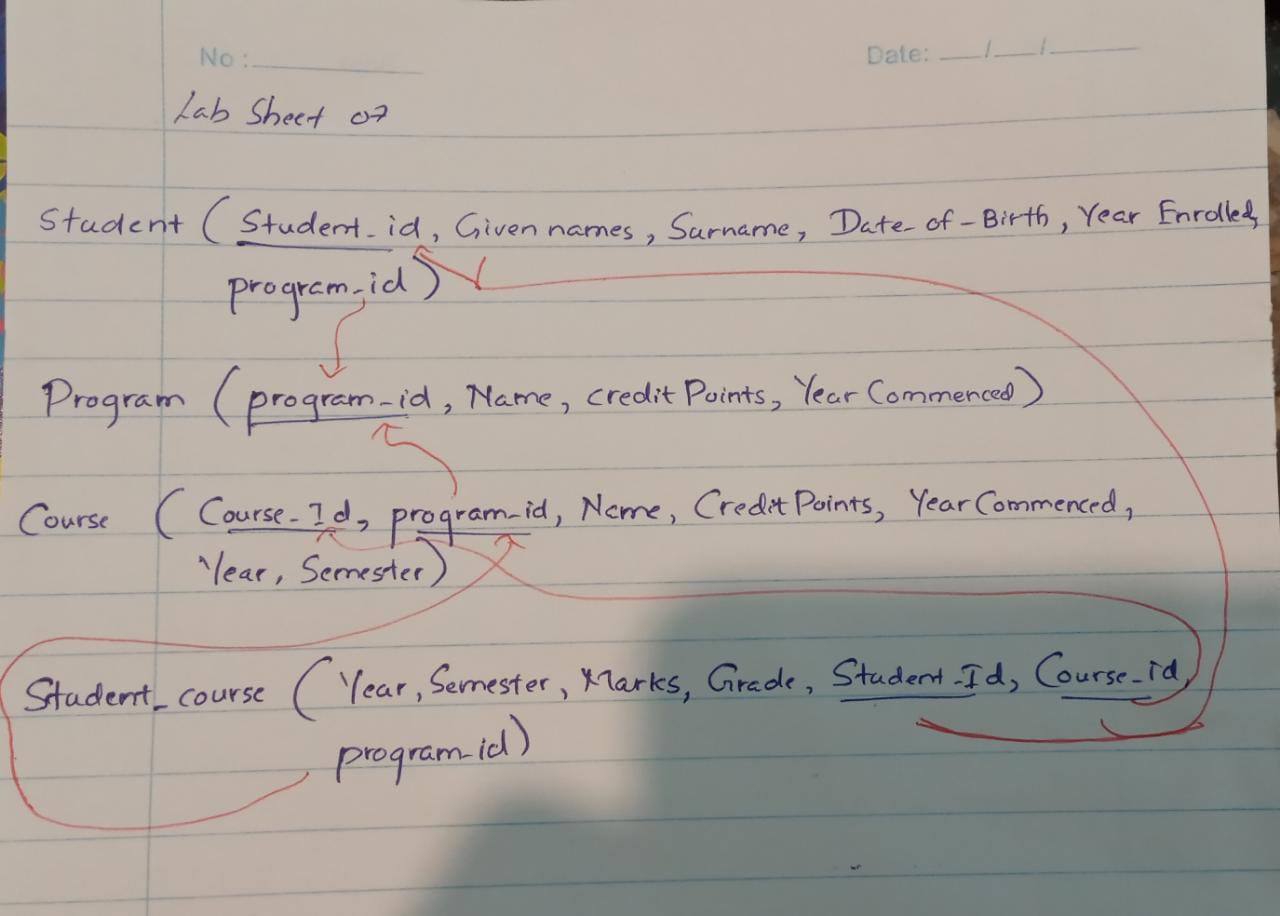 No : Date: / /
Lab Sheet 07
Student ( Student_id, Given names, Surname, Date_of-Birth, Year Enrolled,
program_id)
Program ( program_id, Name, credit Points, Year Commenced)
Course ( Course_Id, program_id, Name, Credit Points, Year Commenced,
Year, Semester)
Student_course ( Year, Semester, Marks, Grade, Student_Id, Course_id,
program_id)